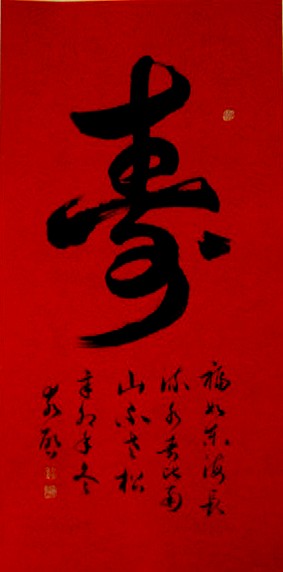 寿
福如东海长
流水寿比南
山不老松
辛卯年冬